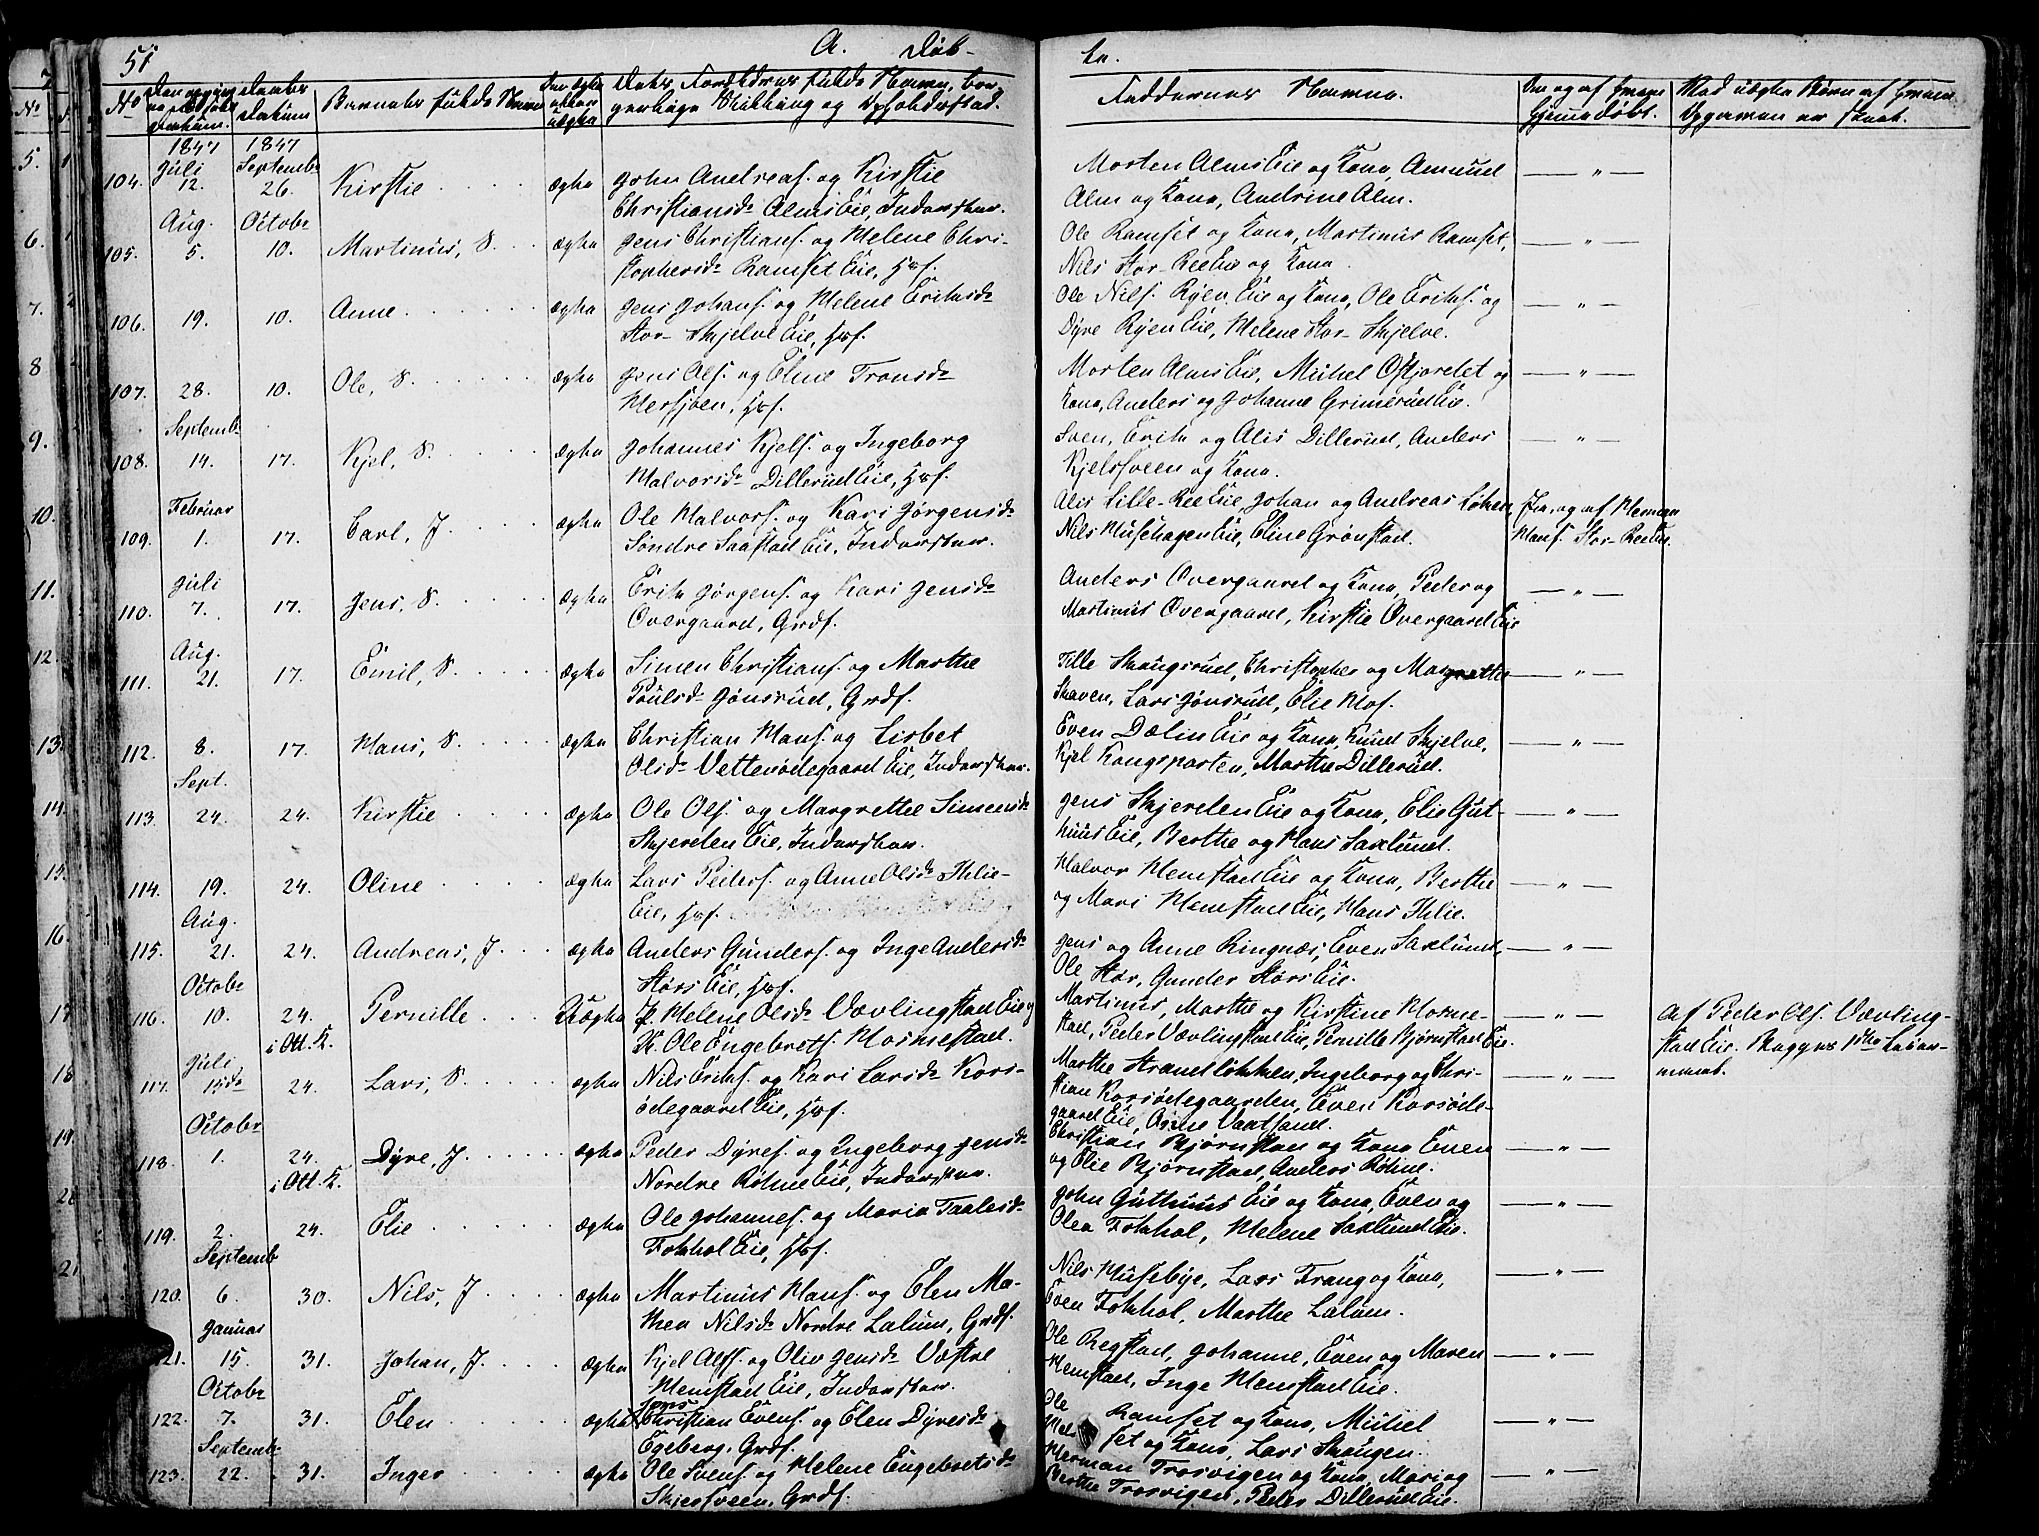 51
A. Døb-
te.
No
Barnets fulde Navn
Faddernes Navne.
1847 1847
Juli Septembr
104. 12. 26. Kirstie ægte John Andreas. og Kirstie
Christiansdr Alms Eie, Inderstkar.
Morten Alms Eie og Kone, Amund
Alm og Kone, Andrine Alm.
Aug. October
105. 5. 10. Martinus, S. ægte Jens Christians. og Helene Chri-
stophersdr Ramset Eie, Hsf.
Ole Ramset og Kone, Martinus Ramset,
Nils Stor-Ree Eie og Kone.
106. 19. 10. Anne ægte Jens Johans. og Helene Eriksdr
Stor-Skjelve Eie, Hsf.
Ole Nils. Ryen Eie og Kone, Ole Eriks. og
Dyre Ryen Eie, Helene Stor-Skjelve.
107. 28. 10. Ole, S. ægte Jens Ols. og Eline Tronsdr
Mersjøen, Hsf.
Morten Alms Eie, Mikkel Ostjordet og
Kone, Anders og Johanne Grimerud Eie.
Septembr
108. 14. 17. Kjel, S. ægte Johannes Kjels. og Ingeborg
Halvorsdr Dillerud Eie, Hsf.
Sven, Erik og Alis Dillerud, Anders
Kjelssveen og Kone.
Februar
109. 1. 17. Carl, J. ægte Ole Halvors. og Kari Jørgensdr
Søndre Saastad Eie, Inderstkar.
Alis Lille-Ree Eie, Johan og Andreas Løken,
Nils Husehagen Eie, Eline Grønstad.
Ja, og af Herman
Hans. Stor-Ree Eie.
Juli
110. 7. 17. Jens, S. ægte Erik Jørgens. og Kari Jensdr
Overgaard, Grdf.
Anders Overgaard og Kone, Peder og
Martinus Overgaard, Kirstie Overgaard Eie
Aug.
111. 21. 17. Emil, S. ægte Simen Christians. og Marthe
Poulsdr Jønsrud, Grdf.
Tille Skaugsrud, Christopher og Margrethe
Skaven, Lars Jønsrud, Elie Hof.
112. 8. 17. Hans, S. ægte Christian Hans. og Lisbet
Olsdr Vettenødegaard Eie, Inderstkar.
Even Dælin Eie og Kone, Knud Skjelve,
Kjel Kongsparten, Marthe Dillerud.
Sept.
113. 24. 24. Kirstie ægte Ole Ols. og Margrethe Simensdr
Skjerden Eie, Inderstkar.
Jens Skjerden Eie og Kone, Elie Gut-
huus Eie, Berthe og Hans Saxlund.
114. 19. 24. Oline ægte Lars Peders. og Anne Olsdr Ihlie-
Eie, Hsf.
Halvor Hemstad Eie og Kone, Berthe
og Mari Hemstad Eie, Hans Ihlie.
Aug.
115. 21. 24. Andreas, J. ægte Anders Gunders. og Inge Andersdr
Størs Eie, Hsf.
Jens og Anne Ringnæs, Even Saxlund,
Ole Stør, Gunder Størs Eie.
Octobr
116. 10. 24. Pernille Uægte P. Helene Olsdr Vævlingstad Eie og
i Ott. K. K. Ole Engebrets. Hornestad.
Martinus, Marthe og Kirstine Horne-
stad, Peder Vævlingstad Eie, Pernille Bjørnstad Eie.
Af Peder Ols. Vævling-
stad Eie. Begges 1ste Leier-
maal.
Juli
117. 15de 24. Lars, S. ægte Nils Eriks. og Kari Larsdr Kors-
ødegaard Eie, Hsf.
Marthe Strandløkken, Ingeborg og Chri-
stian Korsødegaarden, Even Korsøde-
gaard Eie, Anne Vaatsand.
October
118. 1. 24. Dyre, J. ægte Peder Dyres. og Ingeborg Jensdr
i Ott. K. Nordre Røhne Eie, Inderstkar.
Christian Bjørnstad og Kone Even
og Elie Bjørnstad, Anders Røhne.
119. 2. 24. Elie ægte Ole Johannes. og Maria Taalesdr
Fokhol Eie, Hsf.
John Gutthuus Eie og Kone, Even og
Olea Fokhol, Helene Saxlund Eie.
Septemb
120. 6. 30. Nils, J. ægte Martinus Hans. og Elen Ma-
thea Nilsdr Nordre Lalum, Grdf.
Nils Husebye, Lars Frang og Kone,
Even Fokhol, Marthe Lalum.
Januar
121. 15. 31. Johan, J. ægte Kjel Alfs. og Oliv Jensdr Væstre
Hemstad Eie, Inderstkar.
Ole Regstad, Johanne, Even og Maren
Hemstad, Inge Hemstad Eie.
Octobr
122. 7. 31. Elen ægte Christian Evens. og Elen Dyresdr
Egeberg, Grdf.
Ole Ramset og Kone, Mikkel
set og Kone, Lars Skaugen.
Septembr
123. 22. 31. Inger ægte Ole Svens. og Helene Engebretsdr
Skjerssveen, Grdf.
Herman Trosvigen og Kone, Mari og
Berthe Trosvigen, Peder Dillerud Eie.